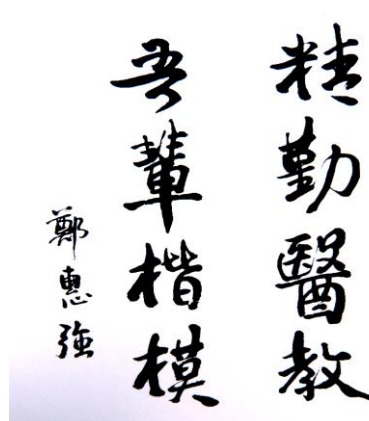 精勤醫教
吾輩楷模
鄭惠強